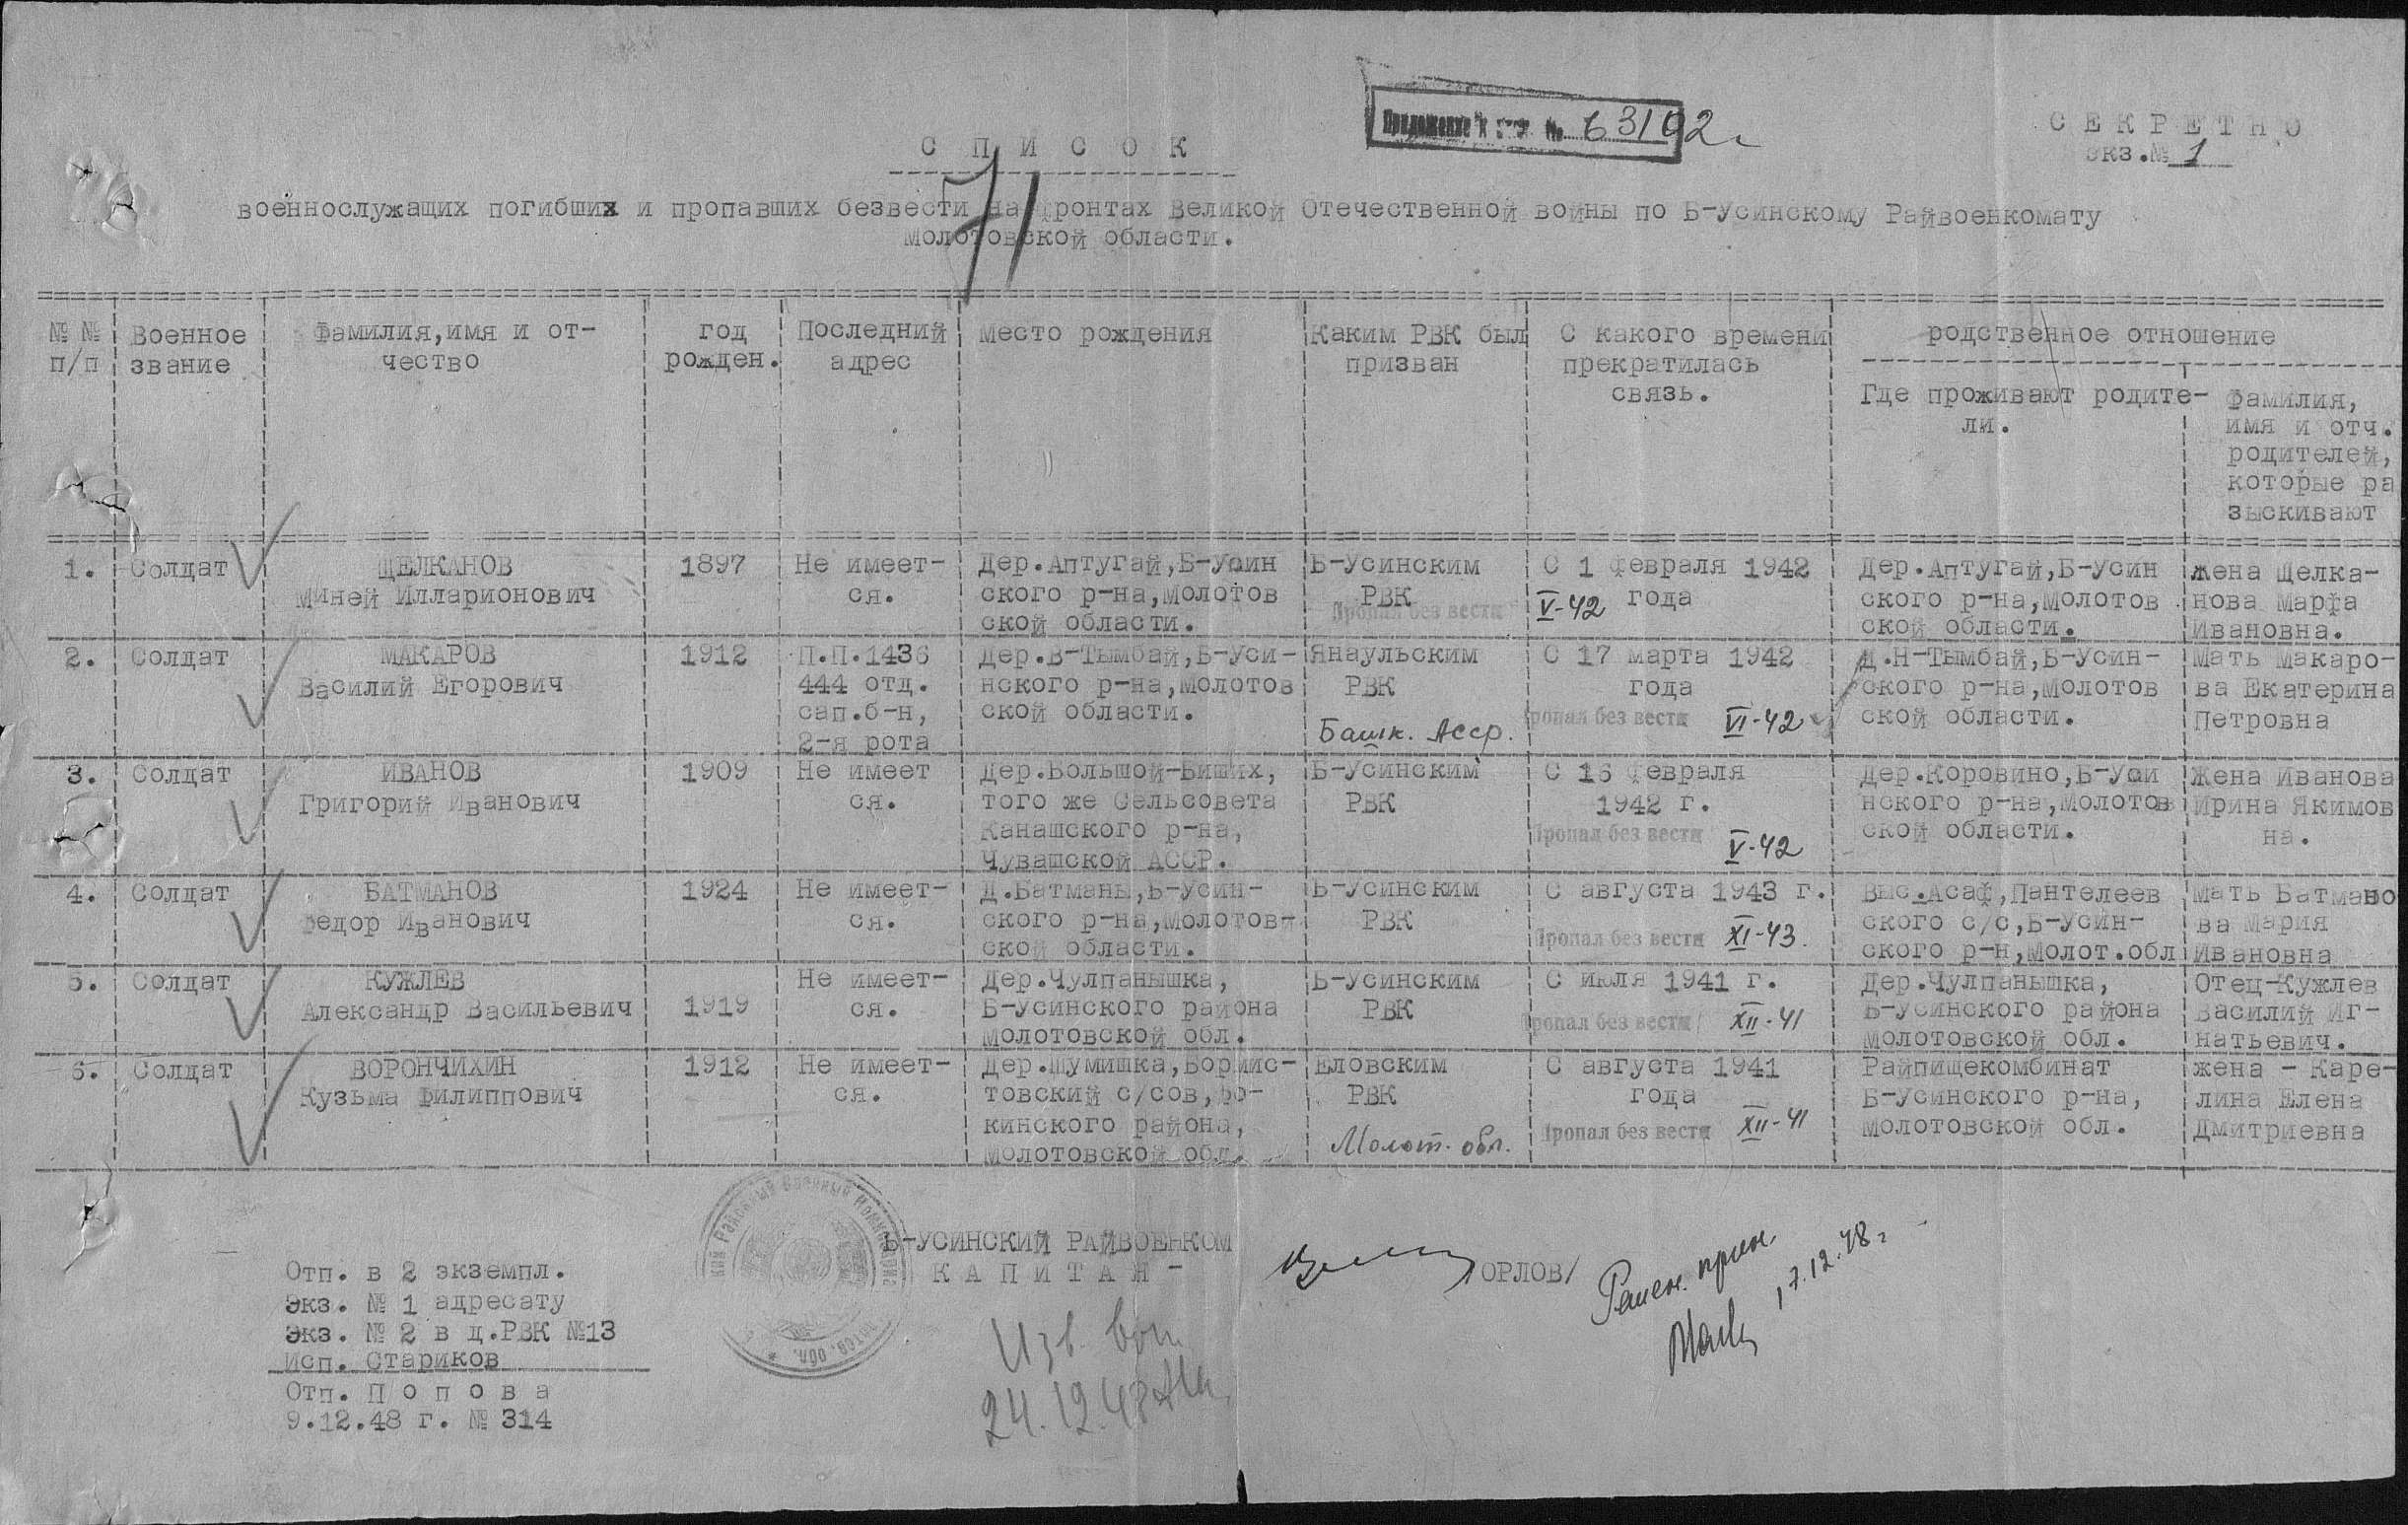 Приложение к вход. № 63192с
СЕКРЕТНО
экз.№ 1
СПИСОК
71
военнослужащих погибших и пропавших безвести на фронтах Великой Отечественной войны по Б-Усинскому Райвоенкомату
Молотовской области.
№ № п/п
Военное звание
Фамилия,имя и от-
чество
год
рожден.
Последний
адрес
место рождения
Каким РВК был
призван
С какого времени
прекратилась
связь.
родственное отношение
Где проживают родите-
ли.
фамилия,
имя и отч.
родителей,
которые ра
зыскивают
1. Солдат
ЩЕЛКАНОВ
Миней Илларионович
1897
Не имеет-
ся.
Дер.Аптугай,Б-Усин
ского р-на,Молотов
ской области.
Б-Усинским
РВК
Пропал без вести
С 1 февраля 1942
года
V-42
Дер.Аптугай,Б-Усин
ского р-на,Молотов
ской области.
жена Щелка-
нова Марфа
Ивановна.
2. Солдат
МАКАРОВ
Василий Егорович
1912
П.П.1436
444 отд.
сап.б-н,
2-я рота
Дер.В-Тымбай,Б-Уси-
нского р-на,Молотов
ской области.
Янаульским
РВК
Башк. Асср.
С 17 марта 1942
года
Пропал без вести VI-42
Д.Н-Тымбай,Б-Усин-
ского р-на,Молотов
ской области.
Мать Макаро-
ва Екатерина
Петровна
3. Солдат
ИВАНОВ
Григорий Иванович
1909
Не имеет
ся.
Дер.Большой-Биших,
того же Сельсовета
Канашского р-на,
Чувашской АССР.
Б-Усинским
РВК
С 16 февраля
1942 г.
Пропал без вести
V-42
Дер.Коровино,Б-Уси
нского р-на,Молотов
ской области.
Жена Иванова
Ирина Якимов
на.
4. Солдат
БАТМАНОВ
Федор Иванович
1924
Не имеет-
ся.
Д.Батманы,Б-Усин-
ского р-на,Молотов-
ской области.
Б-Усинским
РВК
С августа 1943 г.
Пропал без вести XI-43.
Выс.Асаф,Пантелеев
ского с/с,Б-Усин-
ского р-н,Молот.обл
Мать Батмано
ва Мария
Ивановна
5. Солдат
КУЖЛЕВ
Александр Васильевич
1919
Не имеет-
ся.
Дер.Чулпанышка,
Б-Усинского района
Молотовской обл.
Б-Усинским
РВК
С июля 1941 г.
Пропал без вести XII-41
Дер.Чулпанышка,
Б-Усинского района
Молотовской обл.
Отец-Кужлев
Василий Иг-
натьевич.
6. Солдат
ВОРОНЧИХИН
Кузьма Филиппович
1912
Не имеет-
ся.
Дер.Шумишка,Бормис-
товский с/сов,Фо-
кинского района,
Молотовской обл.
Еловским
РВК
Молот. обл.
С августа 1941
года
Пропал без вести XII-41
Райпищекомбинат
Б-Усинского р-на,
Молотовской обл.
жена - Каре-
лина Елена
Дмитриевна
Б-УСИНСКИЙ РАЙВОЕНКОМ
КАПИТАН -
ОРЛОВ/
17.12.48г
Отп. в 2 экземпл.
Экз. № 1 адресату
Экз. № 2 в д.РВК №13
Исп. Стариков
Отп. Попова
9.12.48 г. № 314
Изв.
24.12.48